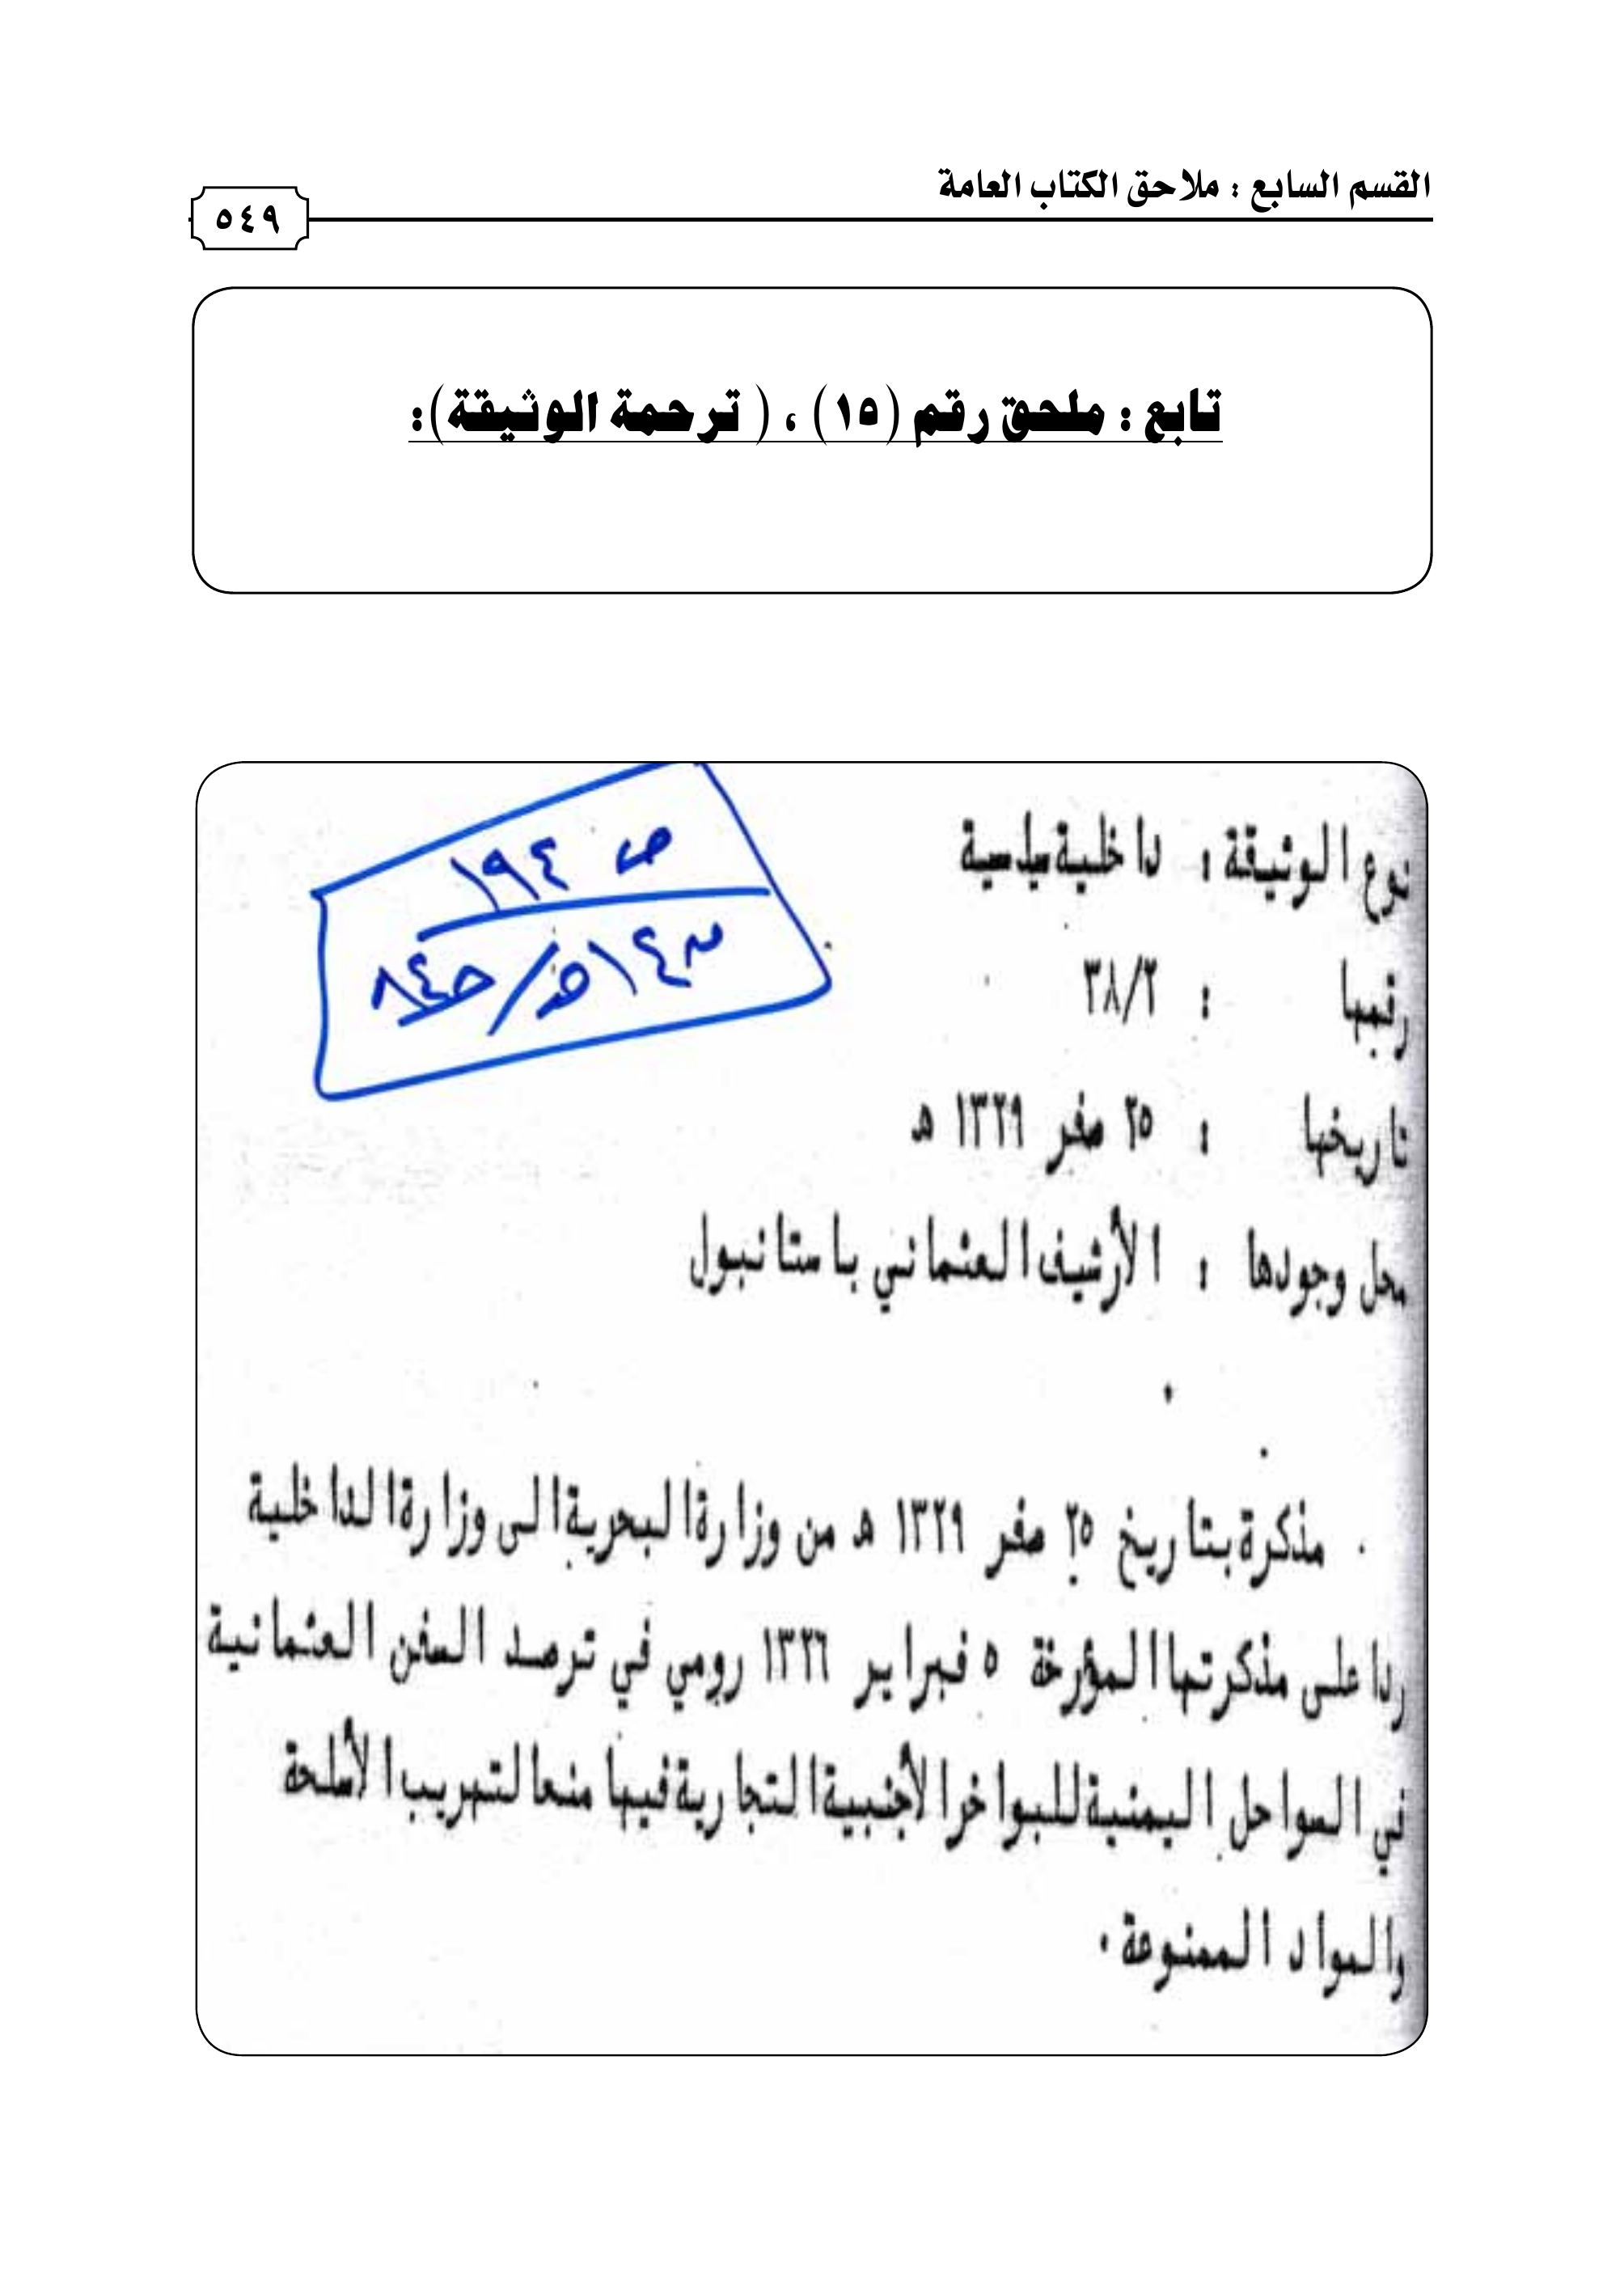 القسم السابع : ملاحق الكتاب العامة
٥٤٩
تابع : ملحق رقم (١٥) ، ( ترحمة الوثيقة):
ص ١٩٤
نوع الوثيقة : داخلية سياسية
رقمها : ٣٨/٢
تاريخها : ٢٥ صفر ١٣٢٩ هـ
محل وجودها : الأرشيف العثماني باستانبول
مذكرة بتاريخ ٢٥ صفر ١٣٢٩ هـ من وزارة البحرية الى وزارة الداخلية
ردا على مذكرتها المؤرخة ٥ فبراير ١٣٢٦ رومي في ترصد السفن العثمانية
في السواحل اليمنية للبواخر الأجنبية التجارية فيها منعا لتهريب الأسلحة
والمواد الممنوعة .